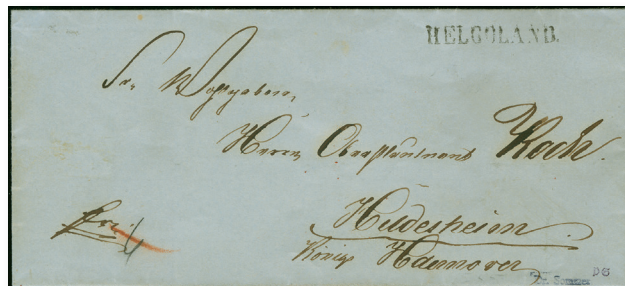 HELGOLAND.
Sr. Wohlgeboren,
Herrn Oberstlieutnant Koch.
Hildesheim.
Königr. Hannover
fr.